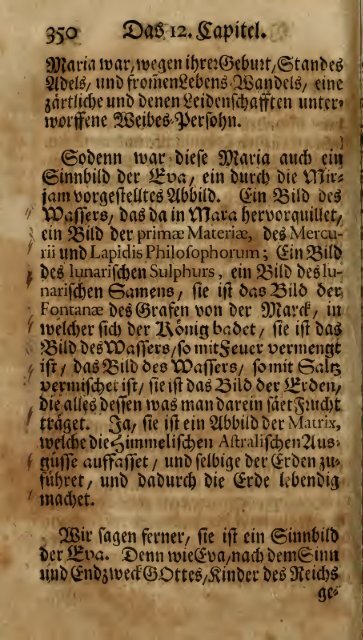 350 Das 12. Capitel.
Maria war, wegen ihrer Geburt, Standes
Adels, und fromen Lebens-Wandels, eine
zärtliche und denen Leidenschafften unter-
worffene Weibes-Persohn.
Sodenn war diese Maria auch ein
Sinnbild der Eva, ein durch die Mir-
jam vorgestelltes Abbild. Ein Bild des
Wassers, das da in Mara hervorquillet,
ein Bild der primæ Materiæ, des Mercu-
rii und Lapidis Philosophorum; Ein Bild
des lunarischen Sulphurs, ein Bild des lu-
narischen Samens, sie ist das Bild der
Fontanæ des Grafen von der Marck, in
welcher sich der König badet, sie ist das
Bild des Wassers/ so mit Feuer vermengt
ist, das Bild des Wassers, so mit Saltz
vermischet ist, sie ist das Bild der Erden,
die alles dessen was man darein säet Frucht
träget. Ja, sie ist ein Abbild der Matrix,
welche die Himmelischen Astralischen Aus-
güsse auffasset, und selbige der Erden zu-
führet, und dadurch die Erde lebendig
machet.
Wir sagen ferner, sie ist ein Sinnbild
der Eva. Denn wie Eva, nach dem Sinn
und Endzweck GOttes, Kinder des Reichs
ge-